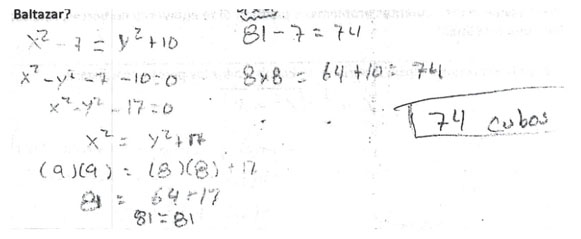 Baltazar?
x² - 7 = y² + 10
x² - y² - 7 - 10 = 0
x² - y² - 17 = 0
x² = y² + 17
(9)(9) = (8)(8) + 17
81 = 64 + 17
81 = 81
81 - 7 = 74
8x8 = 64 + 10 = 74
74 cubos